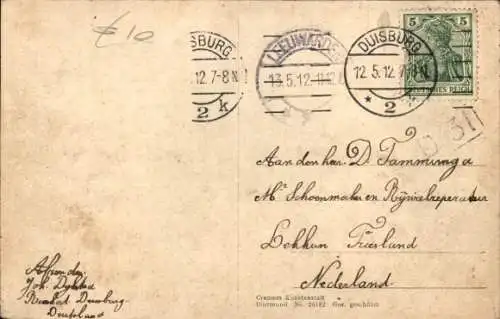 £10
DUISBURG
12 7-8 N.
2 k
LEEUWARDEN
13.5.12. 11-12
DUISBURG
12.5.12. 7-8 N.
* 2
5 5
DEUTSCHES REICH
31
Aan den heer D. Tamminga
Mr Schoenmaker en Rijwielreparateur
Lekkum Friesland
Nederland
Cremers Kunstanstalt
Dortmund No. 26182 Ges. geschützt
Afzender
Joh.
Duisburg